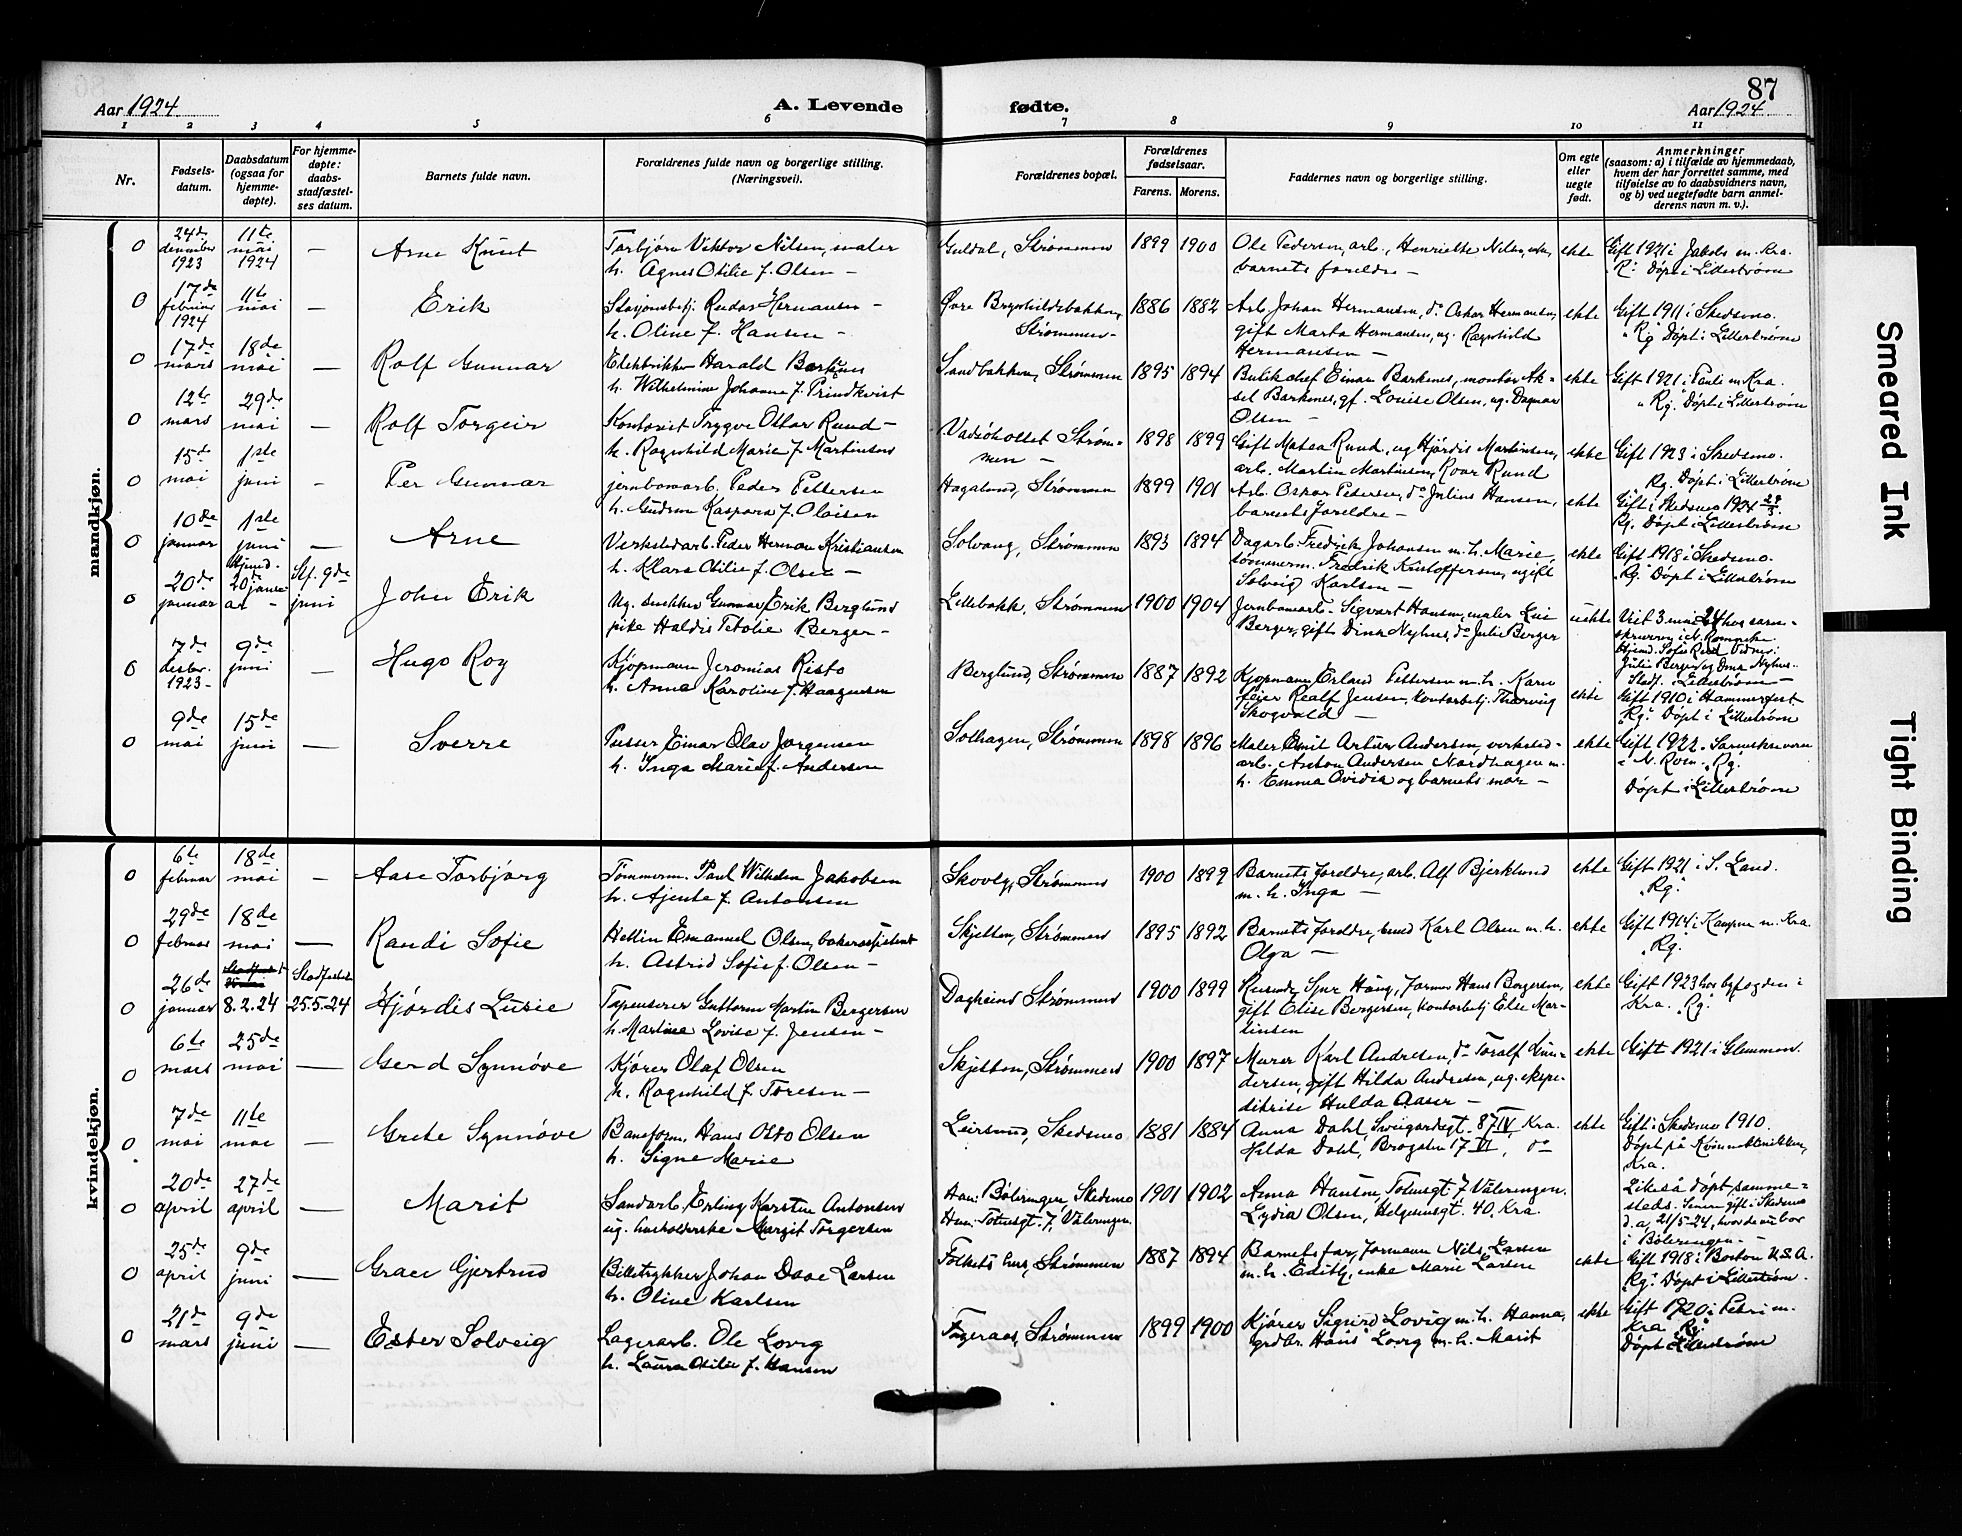 87
Aar 1924
A. Levende
fødte.
Aar 1924
1 2 3 4 5 6 7 8 9 10 11
Nr.
Fødsels-
datum.
Daabsdatum
(ogsaa for
hjemme-
døpte).
For hjemme-
døpte:
daabs-
stadfæstel-
ses datum.
Barnets fulde navn.
Forældrenes fulde navn og borgerlige stilling.
(Næringsvei).
Forældrenes bopæl.
Forældrenes
fødselsaar.
Farens. Morens.
Faddernes navn og borgerlige stilling.
Om egte
eller
uegte
født.
Anmerkninger
(saasom: a) i tilfælde av hjemmedaab,
hvem der har forrettet samme, med
tilføielse av to daabsvidners navn,
og b) ved uegtefødte barn anmel-
derens navn m. v.).
mandkjøn.
0 24de december 1923 11te mai 1924 — Arne Knut
Torbjørn Viktor Nilsen, maler
h. Agnes Otilie f. Olsen —
Guldal, Strømmen 1899 1900
Ole Pedersen, arb., Henriette Nilsen,
barnets foreldre —
ekte
Gift 1921 i Jakobs m. Kra.
"Rg." Døpt i Lillestrøm
0 17de februar 1924 11te mai — Erik
Stasjonsbetj. Hermansen —
h. Oline f. Hansen —
Øvre Brynhildsbakken,
Strømmen —
1886 1882
Arb. Johan Hermansen, do Oskar Hermansen,
gift Marta Hermansen, ug. Ragnhild
Hermansen —
ekte
Gift 1911 i Skedsmo.
"Rg" Døpt i Lillestrøm
0 17de mars 18de mai — Rolf Gunnar
Elektriker Harald Barknes
h. Wilhelmine Johanne f. Prindkvist
Sandbakken, Strømmen 1895 1894
Butikchef Einar Barknes, montør Ak-
sel Barknes, gf. Louise Olsen, ug. Dagmar
Olsen —
ekte
Gift 1921 i Pauli m. Kra.
"Rg." Døpt i Lillestrøm
0 12te mars 29de mai — Rolf Torgeir
Kontorist Trygve Oskar Rund —
h. Ragnhild Marie f. Martinsen
Strøm-
men —
1898 1899
Gift Matea Rund, ug Hjørdis Martinsen,
arb. Martin Martinsen, Roar Rund
ekte
Gift 1923 i Skedsmo.
Rg. Døpt i Lillestrøm
0 15de mai 1ste juni — Per Gunnar
jernbanearb. Peder Pettersen
h. Gudrun Kaspara f. Olaisen
Hagalund, Strømmen 1899 1901
Arb. Oskar Pedersen, do Julius Hansen,
barnets foreldre —
ekte
Gift i Skedsmo 1924
Rg. Døpt i Lillestrøm
0 10de januar 1ste juni — Arne
Verkstedarb. Peder Herman Kristiansen
h. Klara Otilie f. Olsen —
Solvang, Strømmen 1893 1894
Dagarb. Fredrik Johansen m. h. Marie,
tømmerm. Fredrik Kristoffersen, ugift
Solveig Karlsen —
ekte
Gift 1918 i Skedsmo.
"Rg." Døpt i Lillestrøm
0 20de januar Hjemd. 20de januar Stf. 9de juni John Erik
Ug. snekker Gunnar Erik Berglund
pike Haldis Berger —
Lillebakk, Strømmen 1900 1904
Jernbanearb. Sigvart Hansen, maler
Berger, gift Dina Nyhus, do Julie Berger
uekte
Viet 3 mai 24 hos soren-
skriveren i N. Romerike
Julie Berger og Dina Nyhus.
Stadf. i Lillestrøm —
0 7de desbr. 1923 — 9de juni — Hugo Roy
Kjøpmann Jeremias Risto
h. Anna Karoline f. Haagensen
Berglund, Strømmen 1887 1892
Kjøpmann Erland Pettersen m. h. Karen
Realf Jensen, kontorbetj. Thorvig
Skogvold —
ekte
Gift 1910 i Hammerfest.
"Rg." Døpt i Lillestrøm
0 9de mai 15de juni — Sverre
Pusser Einar Olav Jørgensen
h. Inga Marie f. Andersen
Solhagen, Strømmen 1898 1896
Maler Emil Artur Andersen, verksted-
arb. Anton Andersen Nordhagen m.
h. Emma Ovidia og barnets mor —
ekte
Gift 1922. Sorenskriveren
i N. Rom. "Rg."
Døpt i Lillestrøm
kvindekjøn.
0 6te februar 18de mai — Aase Torbjørg
Tømmerm. Paul Wilhelm Jakobsen
h. Agente f. Antonsen
Skovly, Strømmen 1900 1899
Barnets foreldre, arb. Alf Bjerklund
m. h. Inga —
ekte
Gift 1921 i S. Land.
"Rg."
0 29de februar 18de mai — Randi Sofie
Emanuel Olsen, bakerassistent
h. Astrid Sofie f. Olsen —
Skjetten, Strømmen 1895 1892
Barnets foreldre, Karl Olsen m. h.
Olga —
ekte
Gift 1914 i Kampen m. Kra.
Rg.
0 26de januar 8.2.24 Stadfestet 25.5.24 Hjørdis Lusie
Tapetserer Guttorm Martin Bergersen
h. Martine Lovise f. Jensen —
Dagheim, Strømmen 1900 1899
Haug, Former Hans Bergersen,
gift Elise Bergersen, kontorbetj Else Mar-
tinsen
ekte
Gift 1923 hos byfogden i
Kra. "Rg."
0 6te mars 25de mai — Gerd Synnøve
Kjører Olaf Olsen
h. Ragnhild f. Toresen —
Skjetten, Strømmen 1900 1897
Murer Karl Andresen, do Toralf Gun-
dersen, gift Hilda Andresen, ug. ekspe-
ditrise Hulda Aaser —
ekte
Gift 1921 i Glemmen.
0 7de mai 11te mai — Grete Synnøve
Baneform. Hans Otto Olsen
h. Signe Marie
Leirsund, Skedsmo 1881 1884
Anna Dahl, Sveigaardsgt. 87 IV, Kra.
Hilda Dahl, Brogaten 17 VI, do
ekte
Gift i Skedsmo 1910.
Døpt på Kvinneklinikken,
Kra.
0 20de april 27de april — Marit
Sandarb. Erling Karsten Antonsen
ug. Margit Torgersen
Han: Bøleringen, Skedsmo
Hun: Totensgt. 7, Vålerengen.
1901 1902
Anna Hansen, Totensgt 7 Vålerengen.
Lydia Olsen, Helgesensgt. 40, Kra.
Likeså døpt samme-
steds. Senere gift i Skedsmo
d. å. 21/5-24, hvor de nu bor
i Bøleringen. —
0 25de april 9de juni — Grace Gjertrud
Billettrykker Johan Daae Larsen
h. Oline Karlsen
Folkets hus, Strømmen 1887 1894
Barnets far, formann Nils Larsen
m. h. Edith, enke Marie Larsen
ekte
Gift 1918 i Boston U.S.A.
"Rg." Døpt i Lillestrøm.
0 21de mars 9de juni — Ester Solveig
Lagerarb. Ole Lovig
h. Laura Otilie f. Hansen
Fageraas, Strømmen 1899 1900
Kjører Sigurd Lovig m. h. Hanna,
grdbr. Hans Lovig m. h. Marit
ekte
Gift 1920 i Petri m.
Kra "Rg."
Døpt i Lillestrøm
Smeared Ink
Tight Binding